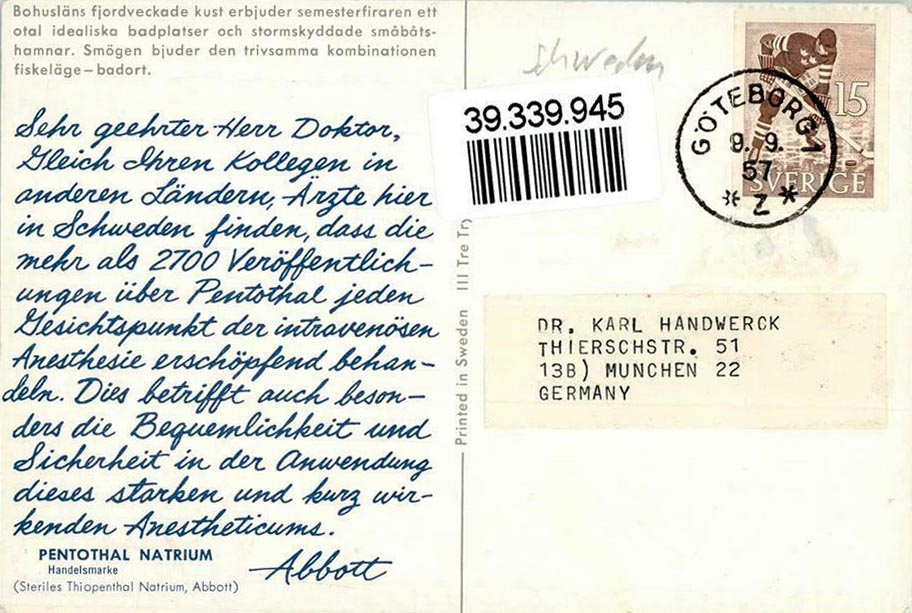 Bohusläns fjordveckade kust erbjuder semesterfiraren ett
otal idealiska badplatser och stormskyddade småbåts-
hamnar. Smögen bjuder den trivsamma kombinationen
fiskeläge – badort.
Sehr geehrter Herr Doktor,
Gleich Ihren Kollegen in
anderen Ländern, Ärzte hier
in Schweden finden, dass die
mehr als 2700 Veröffentlich-
ungen über Pentothal jeden
Gesichtspunkt der intravenösen
Anesthesie erschöpfend behan-
deln. Dies betrifft auch beson-
ders die Bequemlichkeit und
Sicherheit in der Anwendung
dieses starken und kurz wir-
kenden Anestheticums.
PENTOTHAL NATRIUM
Handelsmarke
(Steriles Thiopenthal Natrium, Abbott)
Abbott
Printed in Sweden III Tre Try
Schweden
39.339.945
GÖTEBORG 1
9. 9.
57
* Z *
15
SVERIGE
DR. KARL HANDWERCK
THIERSCHSTR. 51
13B) MUNCHEN 22
GERMANY